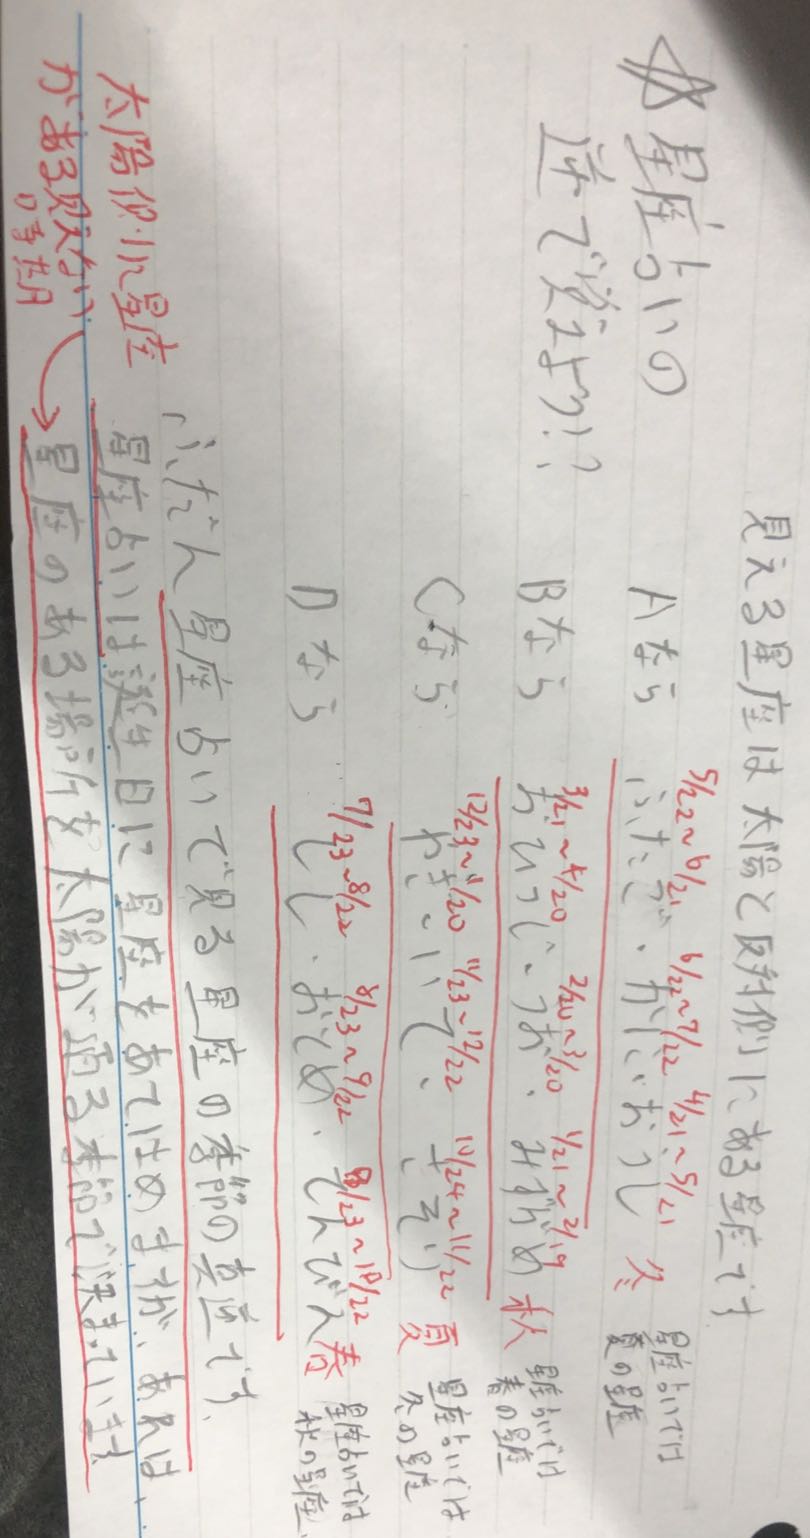 見える星座は太陽と反対側にある星座です
☆星座占いの
逆で覚えよう!?
5/22~6/21 6/22~7/22 4/21~5/21
Aなら ふたご・かに・おうし 冬
星座占いでは
夏の星座
3/21~4/20 2/20~3/20 1/21~2/19
Bなら おひつじ・うお・みずがめ 秋
星座占いでは
春の星座
12/23~1/20 11/23~12/22 10/24~11/22
Cなら やぎ・いて・さそり 夏
星座占いでは
冬の星座
7/23~8/22 8/23~9/22 9/23~10/22
Dなら しし・おとめ・てんびん 春
星座占いでは
秋の星座
ふだん星座占いで見る星座の季節の真逆です。
星座占いは誕生日に星座をあてはめますが、あれは、
星座のある場所を太陽が通る季節で決まっています
太陽側に星座
がある見えない
時だ